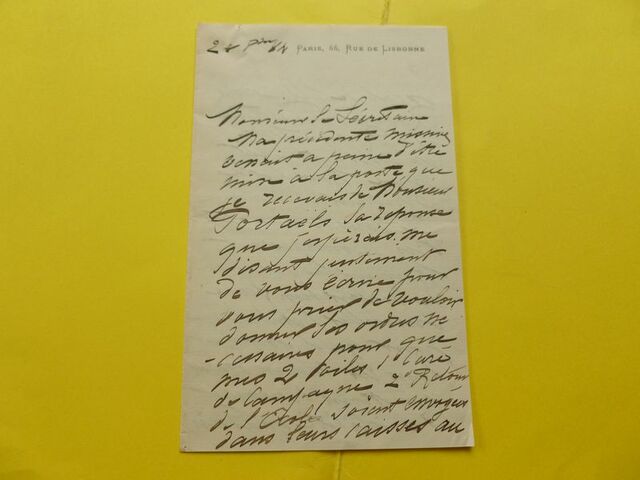 PARIS, 66, RUE DE LISBONNE
Monsieur le Secrétaire
Ma précédente missive
venait a peine d'être
mise à la poste que
je recevais de Monsieur
Portaels la réponse
que j'espérais me
disant justement
de vous écrire pour
vous prier de vouloir
donner les ordres né
-cessaires pour que
mes 2 toiles 1° Curé
de Campagne 2° Retour
de l'Ecole soient envoyées
dans leurs caisses au